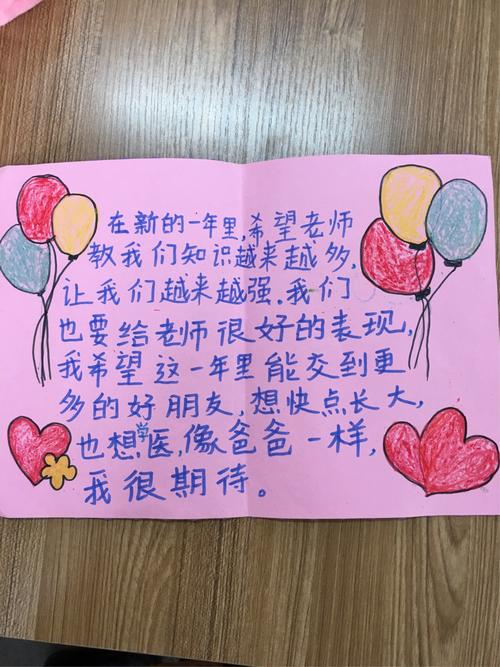 在新的一年里,希望老师
教我们知识越来越多,
让我们越来越强.我们
也要给老师很好的表现,
我希望这一年里能交到更
多的好朋友,想快点长大,
也想学医,像爸爸一样,
我很期待。